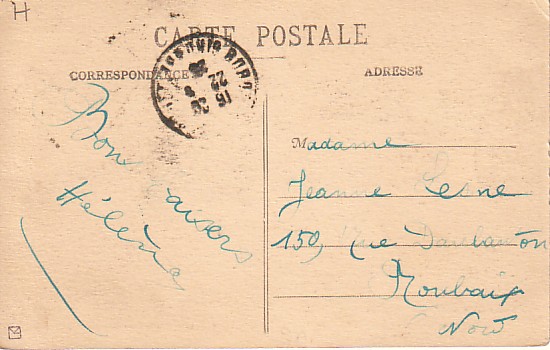 H
CARTE POSTALE
CORRESPONDANCE
ADRESSE
Bons baisers
Hélène
Madame
Jeanne Lesne
150, Rue Daubenton
Roubaix
Nord